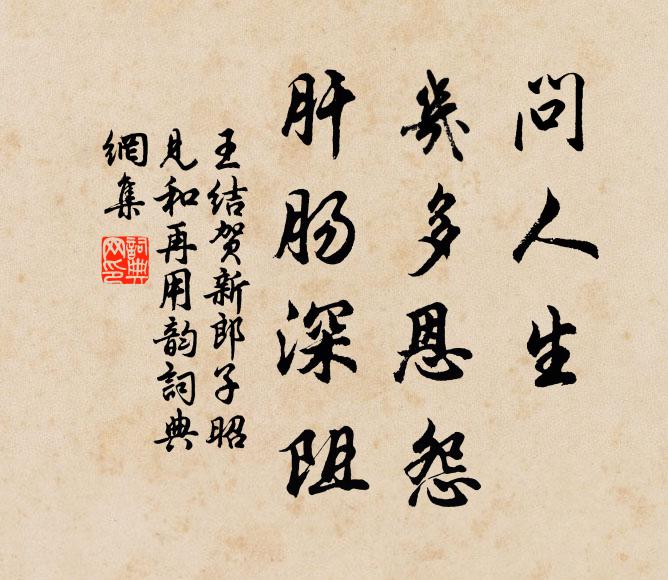 問人生
幾多恩怨
肝肠深阻
王结贺新郎子昭
見和再用韵詞典
網集
詞典
网印